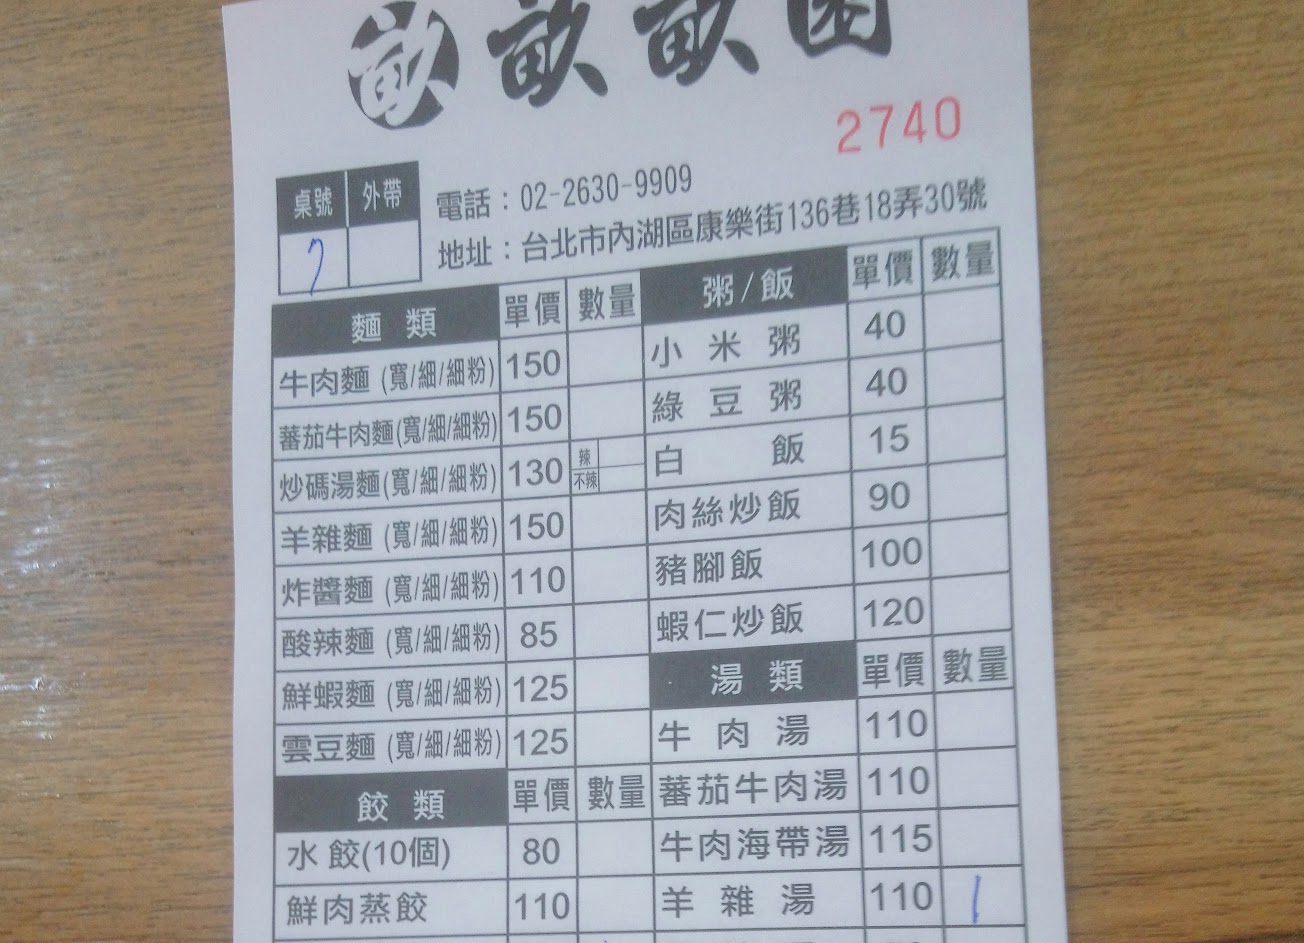 畝 畝畝園
2740
桌號 外帶
7
電話：02-2630-9909
地址：台北市內湖區康樂街136巷18弄30號
麵 類 單價 數量
牛肉麵 (寬/細/細粉) 150
蕃茄牛肉麵(寬/細/細粉) 150
炒碼湯麵(寬/細/細粉) 130 辣 不辣
羊雜麵 (寬/細/細粉) 150
炸醬麵 (寬/細/細粉) 110
酸辣麵 (寬/細/細粉) 85
鮮蝦麵 (寬/細/細粉) 125
雲豆麵 (寬/細/細粉) 125
餃 類 單價 數量
水 餃(10個) 80
鮮肉蒸餃 110
粥/飯 單價 數量
小 米 粥 40
綠 豆 粥 40
白 飯 15
肉絲炒飯 90
豬腳飯 100
蝦仁炒飯 120
湯 類 單價 數量
牛 肉 湯 110
蕃茄牛肉湯 110
牛肉海帶湯 115
羊 雜 湯 110 1